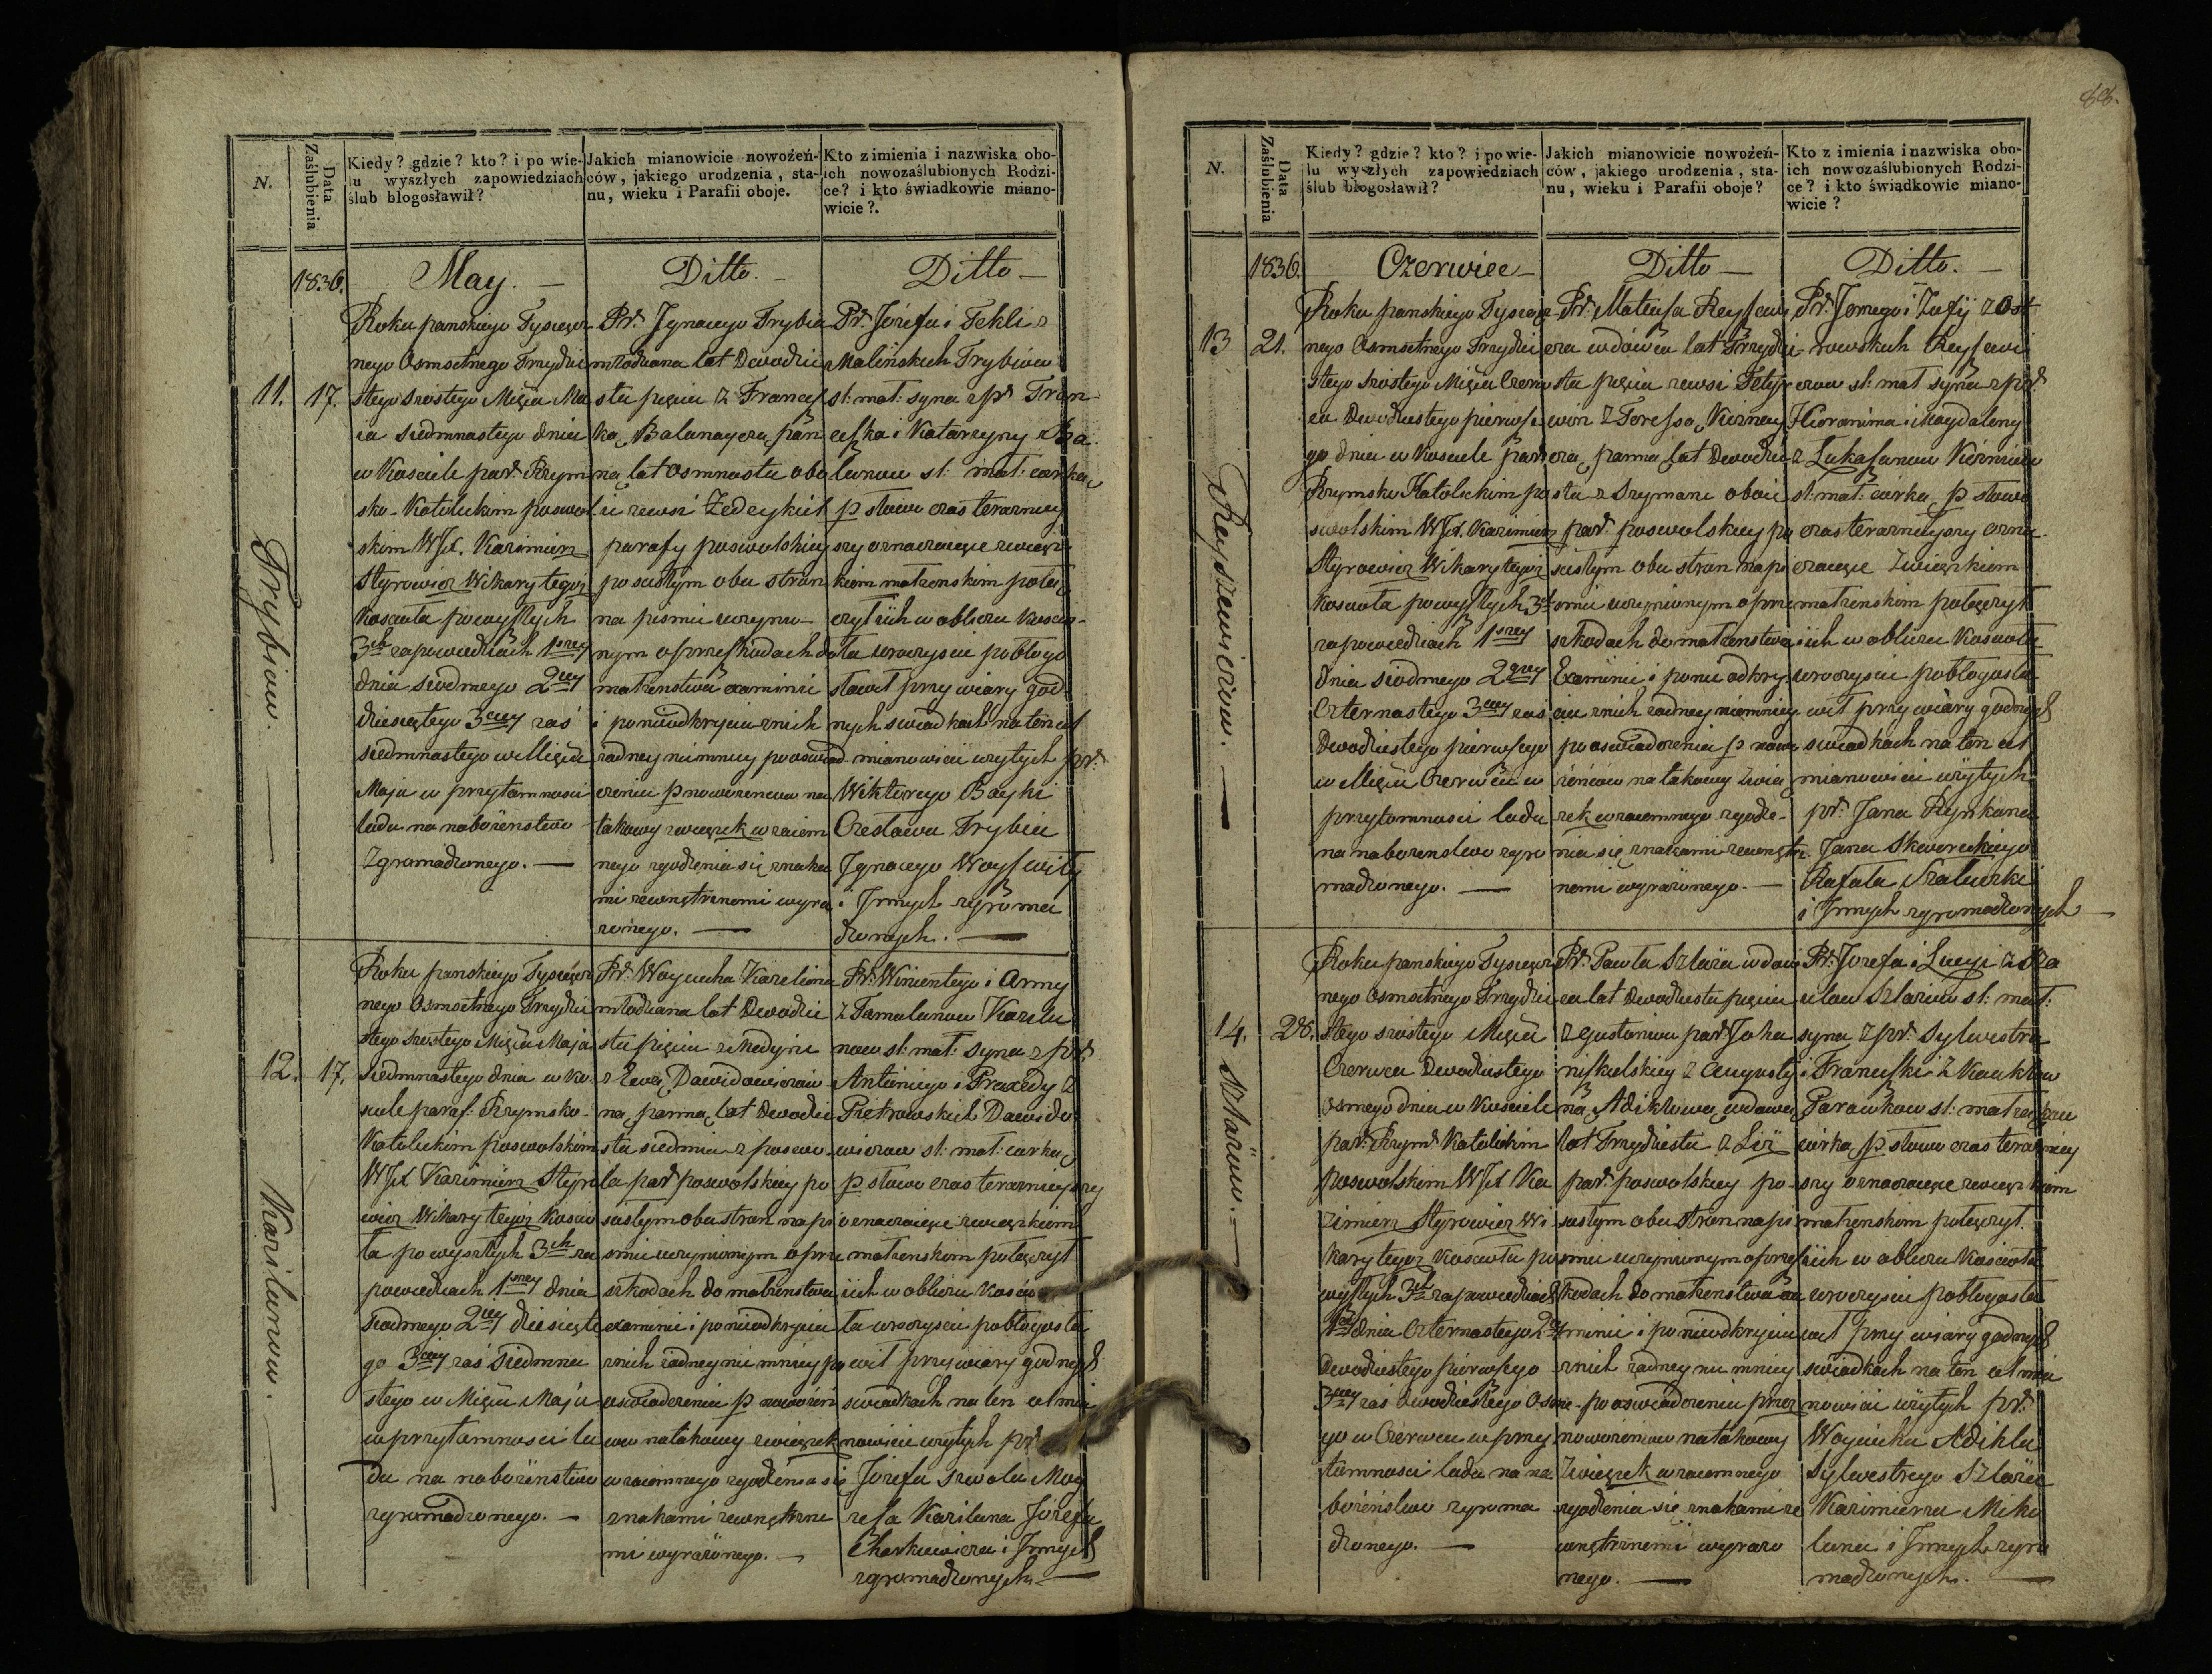 N.
Data
Zaślubienia
Kiedy? gdzie? kto? i po wie-
lu wyszłych zapowiedziach
ślub błogosławił?
Jakich mianowicie nowożeń-
ców, jakiego urodzenia, sta-
nu, wieku i Parafii oboje.
Kto z imienia i nazwiska obo-
ich nowozaślubionych Rodzi-
ce? i kto świadkowie miano-
wicie?
1836.
May.
Ditto.
Ditto
11.
17.
Trybiow.
Roku panskiego Tysiącz
nego Osmsetnego Trzydzie
stego szostego Mięca Ma
ia siedmnastego dnia
w Kosciele par. Rzym
sko-Katolickim poswol
skim WJX. Kazimierz
Styrowicz Wikary tegoż
Koscioła po wyszłych
3ch zapowiedziach 1szey
dnia siodmego 2giey
dziesiątego 3ciey zaś
siedmnastego w Mięcu
Maju w przytomnosci
ludu na nabożenstwo
zgromadzonego.
Pr. Jgnacego Trybia
młodziana lat Dwadzie
stu pięciu z Francisz
ką Balanayczą pan
ną lat osmnastu obo
ie zewsi Zedeykiel
parafy poswolskiey
po scisłym obu stron
na pismie uczynio-
nym o przeszkodach do
małżenstwa examinie
i po nieodkryciu z nich
żadney niemniey po oswiad
czeniu p nowożencow na
takowy związek wzaiem
nego zgodzenia się znaka
mi zewnętrznemi wyra
żonego.
Pr. Jozefa i Tekli z
Malińskich Trybiow
sl: mał: syna z pr Fran-
ciszka i Katarzyny z Ba
lanow sl: mał: corką
p słowa czas terazniey
szy oznaczaiące związ
kiem małżenskim połą
czył i ich w obliczu koscio-
ła uroczyscie pobłogo
sławił przy wiary god-
nych swiadkach na ten cel
mianowicie użytych pr.
Wiktorego Bayki
Czesława Trybia
Jgnacego Woyszwiły
i Jnnych zgroma
dzonych.
12.
17.
Karilanow.
Roku panskiego Tysiącz
nego Osmsetnego Trzydzie
stego szostego Mięca Maja
siedmnastego dnia w ko-
sciele paraf: Rzymsko-
Katolickim poswolskim
WJX Kazimierz Styro
wicz Wikary tegoż koscio
ła po wyszłych 3ch za
powiedziach 1szey dnia
siodmego 2giey dziesiąte
go 3ciey zaś siedmna
stego w Mięcu Maju
w przytomnosci lu
du na nabożenstwo
zgromadzonego.
Pr. Woyciecha Karilana
młodziana lat Dwadzie
stu pięciu z Medyni
z Ewą Dawidowiczow
ną panną lat Dwadzie
stu siedmiu z poswo
la par poswolskiey po
scisłym obu stron na pi
smie uczynionym o prze
szkodach do małżenstwa
examinie i po nieodkryciu
z nich żadney nie mniey po
oswiadczeniu p nowożen
cow na takowy związek
wzaiemnego zgodzenia się
znakami zewnętrzne
mi wyrażonego.
Pr. Winientego i Anny
z Tamulanow Karila
now sl: mał: syna z pr
Antoniego i Praxedy z
Pietrowskich Dawido
wiczow sl: mał: corką
p słowa czas teraznieyszy
oznaczaiące związkiem
małżenskim połączył
i ich w obliczu koscio
ła uroczyscie pobłogosła
wił przy wiary godnych
swiadkach na ten cel mia
nowicie użytych pr
Jozefa Szwola Moy
zesza Karilana Jozefa
Charkiewicza i Jnnych
zgromadzonych.
88.
N.
Data
Zaślubienia
Kiedy? gdzie? kto? i po wie-
lu wyszłych zapowiedziach
ślub błogosławił?
Jakich mianowicie nowożeń-
ców, jakiego urodzenia, sta-
nu, wieku i Parafii oboje?
Kto z imienia i nazwiska obo-
ich nowozaślubionych Rodzi-
ce? i kto świadkowie miano-
wicie?
1836.
Czerwiec
Ditto
Ditto.
13
21.
Reyszewiczow.
Roku panskiego Tysiącz
nego Osmsetnego Trzydzie
stego szostego Mięca Czerw
ca Dwudziestego pierwsze
go dnia w kosciele par
Rzymsko Katolickim po
swolskim WJX. Kazimierz
Styrowicz Wikary tegoż
koscioła po wyszłych 3ch
zapowiedziach 1szey
dnia siodmego 2giey
Czternastego 3ciey zaś
Dwudziestego pierwszego
w Mięcu Czerwcu w
przytomnosci ludu
na nabozenstwo zgro
madzonego.
Pr. Mateusza Reyszewi
cza wdowca lat Trzydzie-
stu pięciu zewsi
z Teressą Kiżniewi
czą panną lat Dwadzie
stu z Szymanc oboie
par. poswolskiey po
scisłym obu stron na pi
smie uczynionym o prze
szkodach do małżenstwa
Examinie i po nie odkry
ciu z nich żadney niemniey
po oswiadczeniu p nowo
żeńcow na takowy zwią
zek wzaiemnego zgodze-
nia się znakami zewnętrz
nemi wyrażonego.
Pr. Jerzego i Zofij z Ost
rowskich Reyszewi
czow sl: mał syna z pr.
Hieronima i Magdaleny
z Łukaszunow Kiżniewi
sl: mał: corką p słowa
czas teraznieyszy ozna-
czaiące Związkiem
małżenskim połączył
i ich w obliczu koscioła
uroczyscie pobłogosła-
wił przy wiary godnych
swiadkach na ten cel
mianowicie użytych
pr. Jana Rynkuna
Jana Skworeckiego
Rafała
i Jnnych zgromadzonych
14.
28.
Szlażow.
Roku panskiego Tysiącz
nego Osmsetnego Trzydzie
stego szostego Mięca
Czerwca Dwudziestego
osmego dnia w Kosciele
par: Rzym Katolickim
poswolskim WJX Ka
zimierz Styrowicz Wi
kary tegoż koscioła po
wyszłych 3ch zapowiedziach
1szey dnia Czternastego 2giey
Dwudziestego pierwszego
3ciey zaś dwudziestego osme-
go w Czerwcu w przy
tomnosci ludu na na
bożenstwo zgroma
dzonego.
Pr. Pawła Szlaża wdow
ca lat Dwudziestu pięciu
z Gustoniow par Joha
niszkielskiey z Augusty
ną Adiklową wdową
lat Trzydziestu z
par: poswolskiey po-
scisłym obu stron na pi
smie uczynionym o przesz
kodach do małżenstwa exa
minie i po nieodkryciu
z nich żadney nie mniey
po oswiadczeniu przez
nowożencow na takowy
Związek wzaiemnego
zgodzenia się znakami ze
wnętrznemi wyrażo
nego.
Pr. Jozefa i Łucyi z
Szlażow sl: mał:
syna z pr. Sylwestra
i Franciszki z
sl: mał:
corką p słowa czas terazniey
szy oznaczaiące związkiem
małżenskim połączył
i ich w obliczu koscioła
uroczyscie pobłogosła
wił przy wiary godnych
swiadkach na ten cel mia
nowicie użytych pr.
Woyciecha Adikla
Sylwestrego Szlaża
Kazimierza Miko
luna i Jnnych zgro
madzonych.